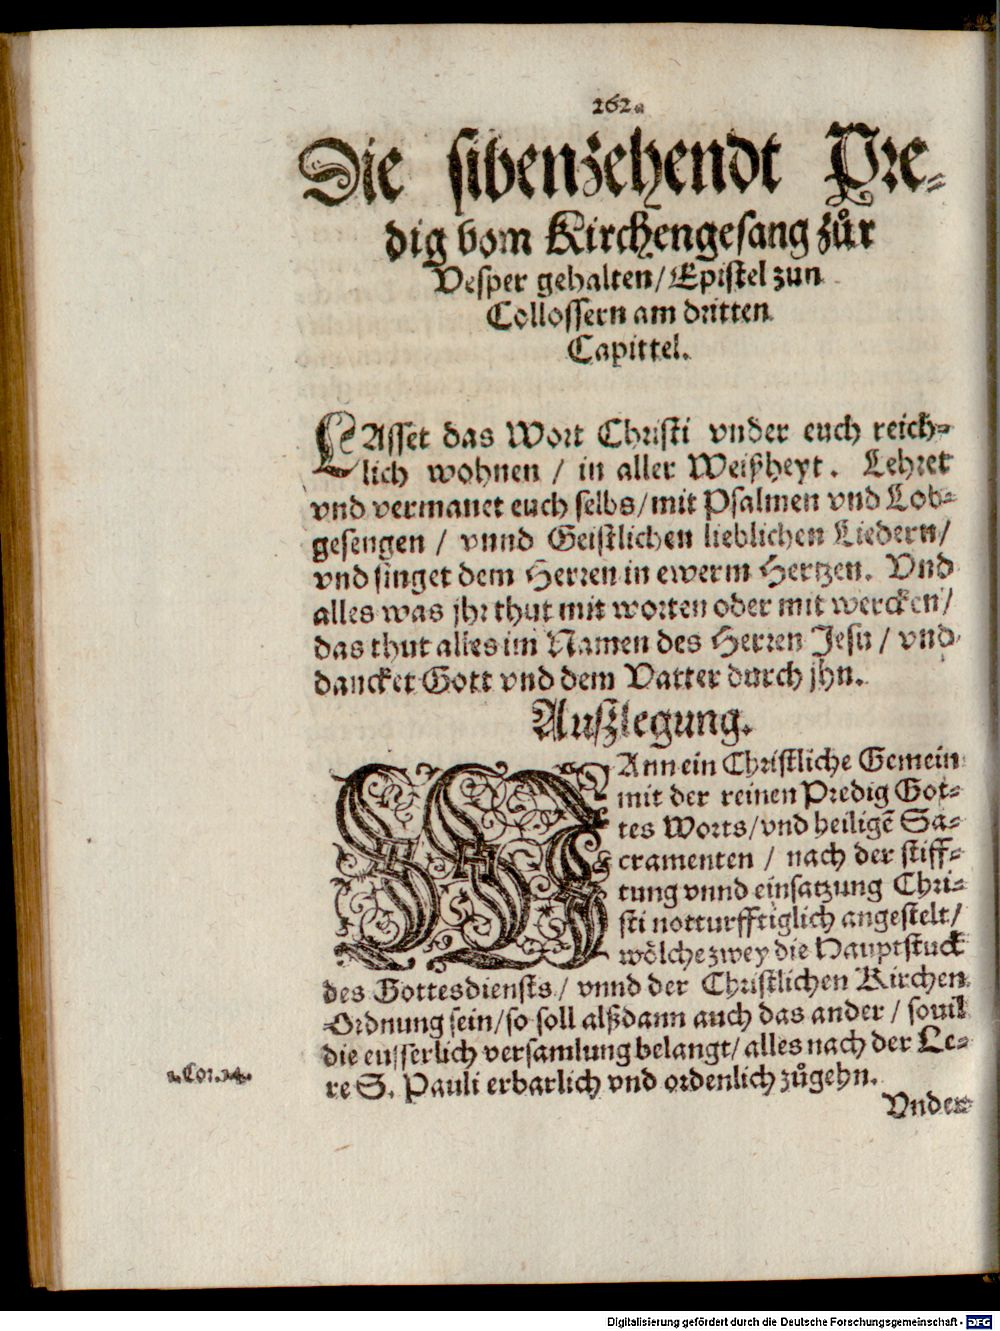 262.
Die sibenzehendt Pre-
dig vom Kirchengesang zůr
Vesper gehalten/ Epistel zun
Collossern am dritten
Capittel.
LAsset das Wort Christi vnder euch reich-
lich wohnen / in aller Weißheyt. Lehret
vnd vermanet euch selbs/ mit Psalmen vnd Lob-
gesengen / vnnd Geistlichen lieblichen Liedern/
vnd singet dem Herren in ewerm Hertzen. Vnd
alles was jhr thut mit worten oder mit wercken/
das thut alles im Namen des Herren Jesu / vnd
dancket Gott vnd dem Vatter durch jhn.
Außlegung.
WAnn ein Christliche Gemein
mit der reinen Predig Got-
tes Worts/ vnd heiligẽ Sa-
cramenten / nach der stiff-
tung vnnd einsatzung Chri-
sti notturfftiglich angestelt/
wölche zwey die Hauptstuck
des Gottesdiensts / vnnd der Christlichen Kirchen
Ordnung sein/ so soll alßdann auch das ander / souil
die eusserlich versamlung belangt/ alles nach der Le-
re S. Pauli erbarlich vnd ordenlich zůgehn.
1. Cor. 14.
Vnder
Digitalisierung gefördert durch die Deutsche Forschungsgemeinschaft - DFG